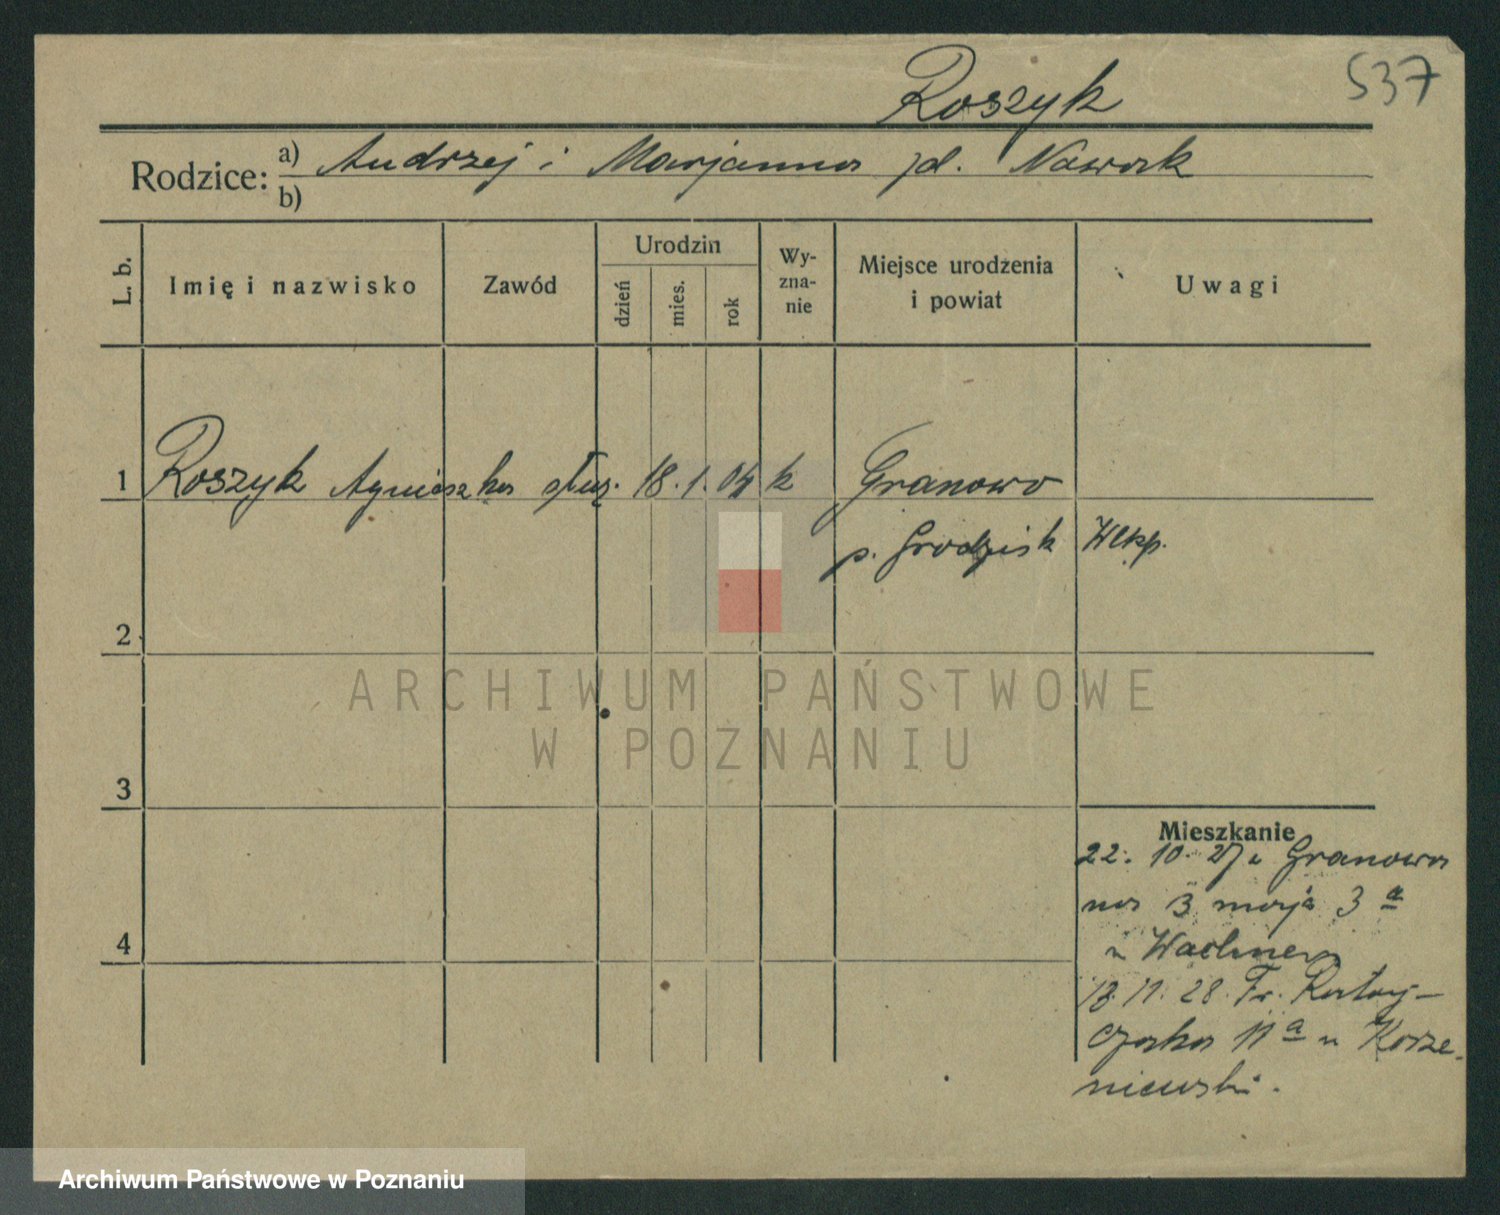 Roszyk
537
Rodzice: a) Andrzej i Marjanna zd. Nawrok
b)
L. b.
Imię i nazwisko
Zawód
Urodzin
dzień
mies.
rok
Wy-
zna-
nie
Miejsce urodzenia
i powiat
Uwagi
1 Roszyk Agnieszka służ. 18. 1. 04 k Granowo
p. Grodzisk Wlkp.
2
3
4
Mieszkanie
22. 10. 27 z Granowa
na 3 maja 3 a
u Wachner
13. 11. 28. Fr. Rataj-
czaka 11 a u Korze-
niewski.
ARCHIWUM PAŃSTWOWE
W POZNANIU
Archiwum Państwowe w Poznaniu